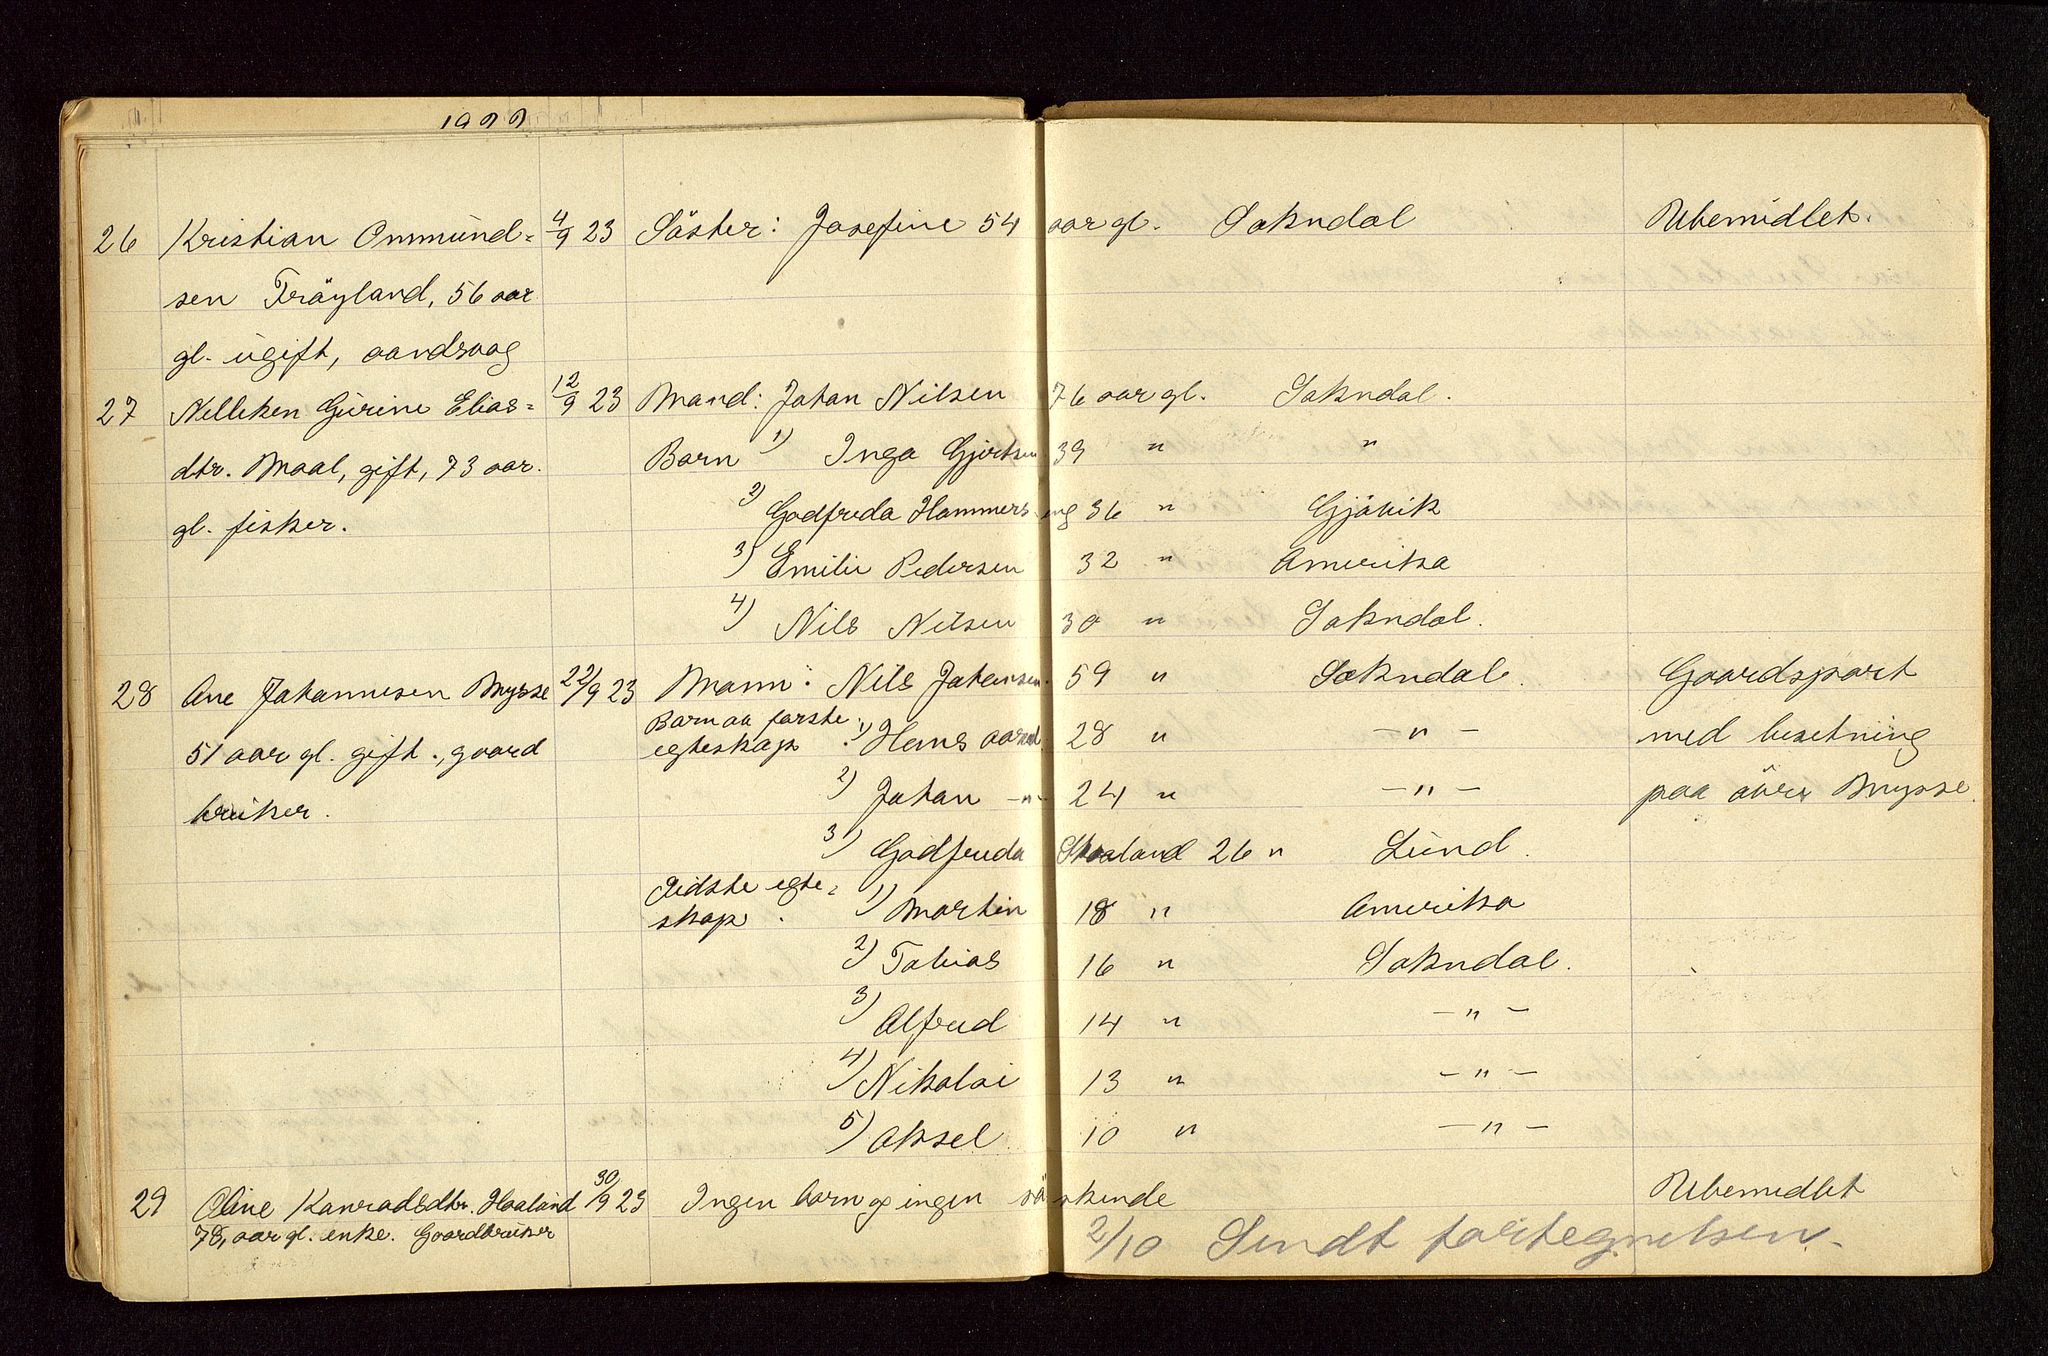 26 Kristian Ommund= 4/9 23 Söster: Josefine 54 aar gl. Sokndal Ubemidlet.
sen Tröyland, 56 aar
gl. ugift, aandsvag
27 Nelleken Gurine Elias= 12/9 23 Mand: Johan Nilsen 76 aar gl. Sokndal.
dtr. Moal, gift, 73 aar. Barn 1) Inga Gjertsen 39 " "
gl. fisker. 2) Godfreda Hammers eng 36 " Gjövik
3) Emilie Pedersen 32 " Amerika
4) Nils Nilsen 30 " Sokndal.
28 Ane Johannesen Mysse 22/9 23 Mann: Nils Johansen. 59 " Sokndal. Gaardspart
51 aar gl. gift., gaard Barn av förste egteskap 1) Hans 28 " — " — med besetning
bruker. 2) Johan —"— 24 " — " — paa övre Mysse.
3) Godfreda Skaaland 26 " Lund.
Sidste egte= skap. 1) Martin 18 " Amerika
2) Tobias 16 " Sokndal.
3) Alfred 14 " — " —
4) Nikolai 13 " — " —
5) Aksel 10 " — " —
29 Oline Konradsdtr. Haaland 30/9 23 Ingen barn og ingen söskende Ubemidlet
78, aar gl. enke. Gaardbruker
2/10 Sendt fortegnelsen.